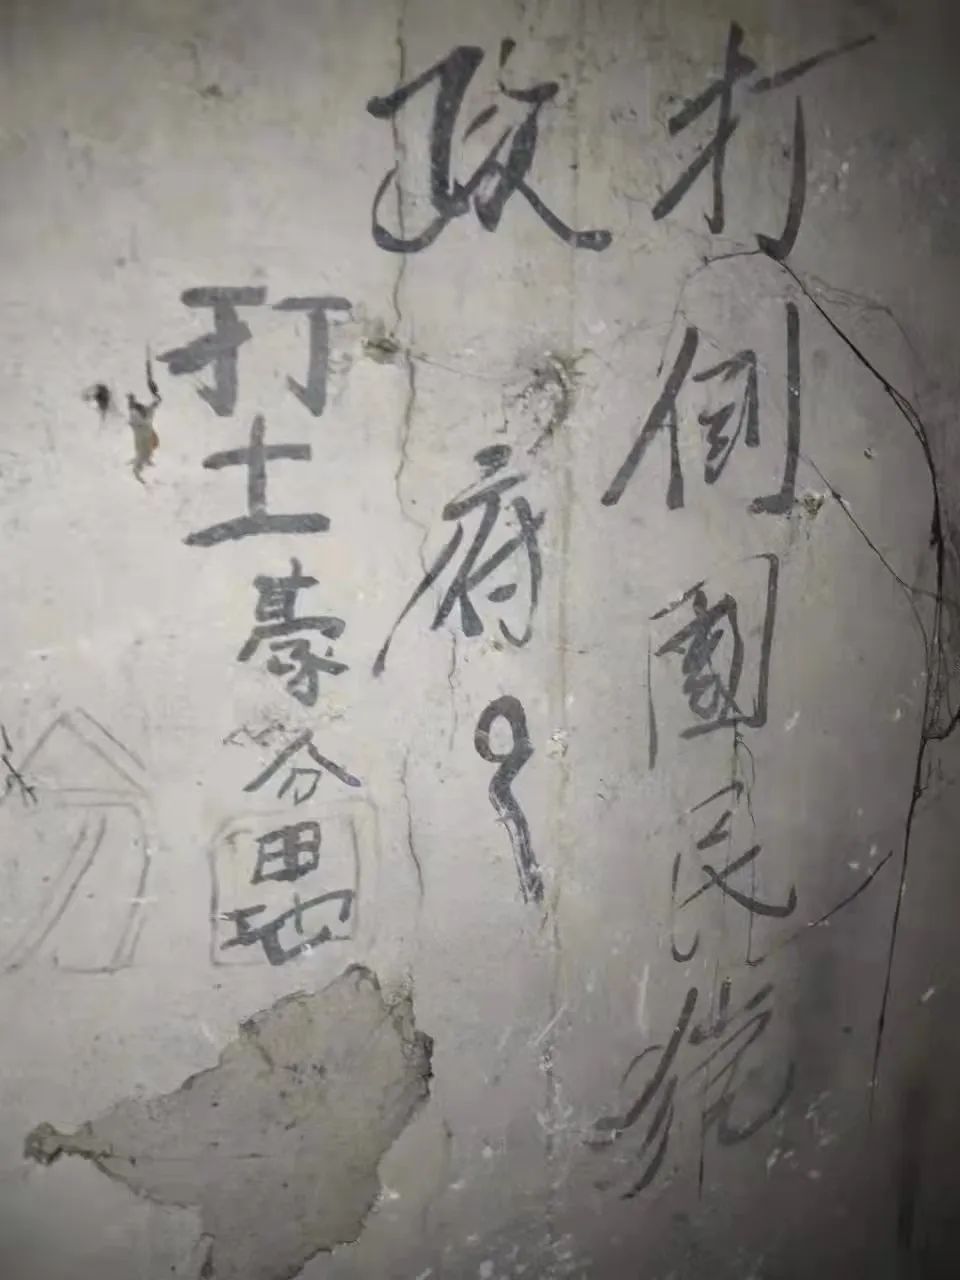 打倒國民党
政府！
打土豪分田地
分